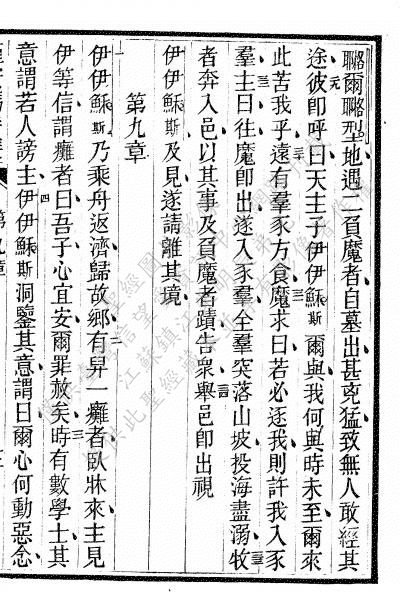 聮爾聮型地遇二負魔者自墓出甚兇猛致無人敢經其
途彼卽呼曰天主子伊伊穌斯爾與我何與時未至爾來
此苦我乎遠有羣豕方食魔求曰若必逐我則許我入豕
羣主曰往魔卽出遂入豕羣全羣突落山坡投海盡溺牧
者奔入邑以其事及負魔者蹟吿衆舉邑卽出視
伊伊穌斯及見遂請離其境
第九章
伊伊穌斯乃乘舟返濟歸故鄉有舁一癱者臥牀來主見
伊等信謂癱者曰吾子心宜安爾罪赦矣時有數學士其
意謂若人謗主伊伊穌斯洞鑒其意謂曰爾心何動惡念
第九章